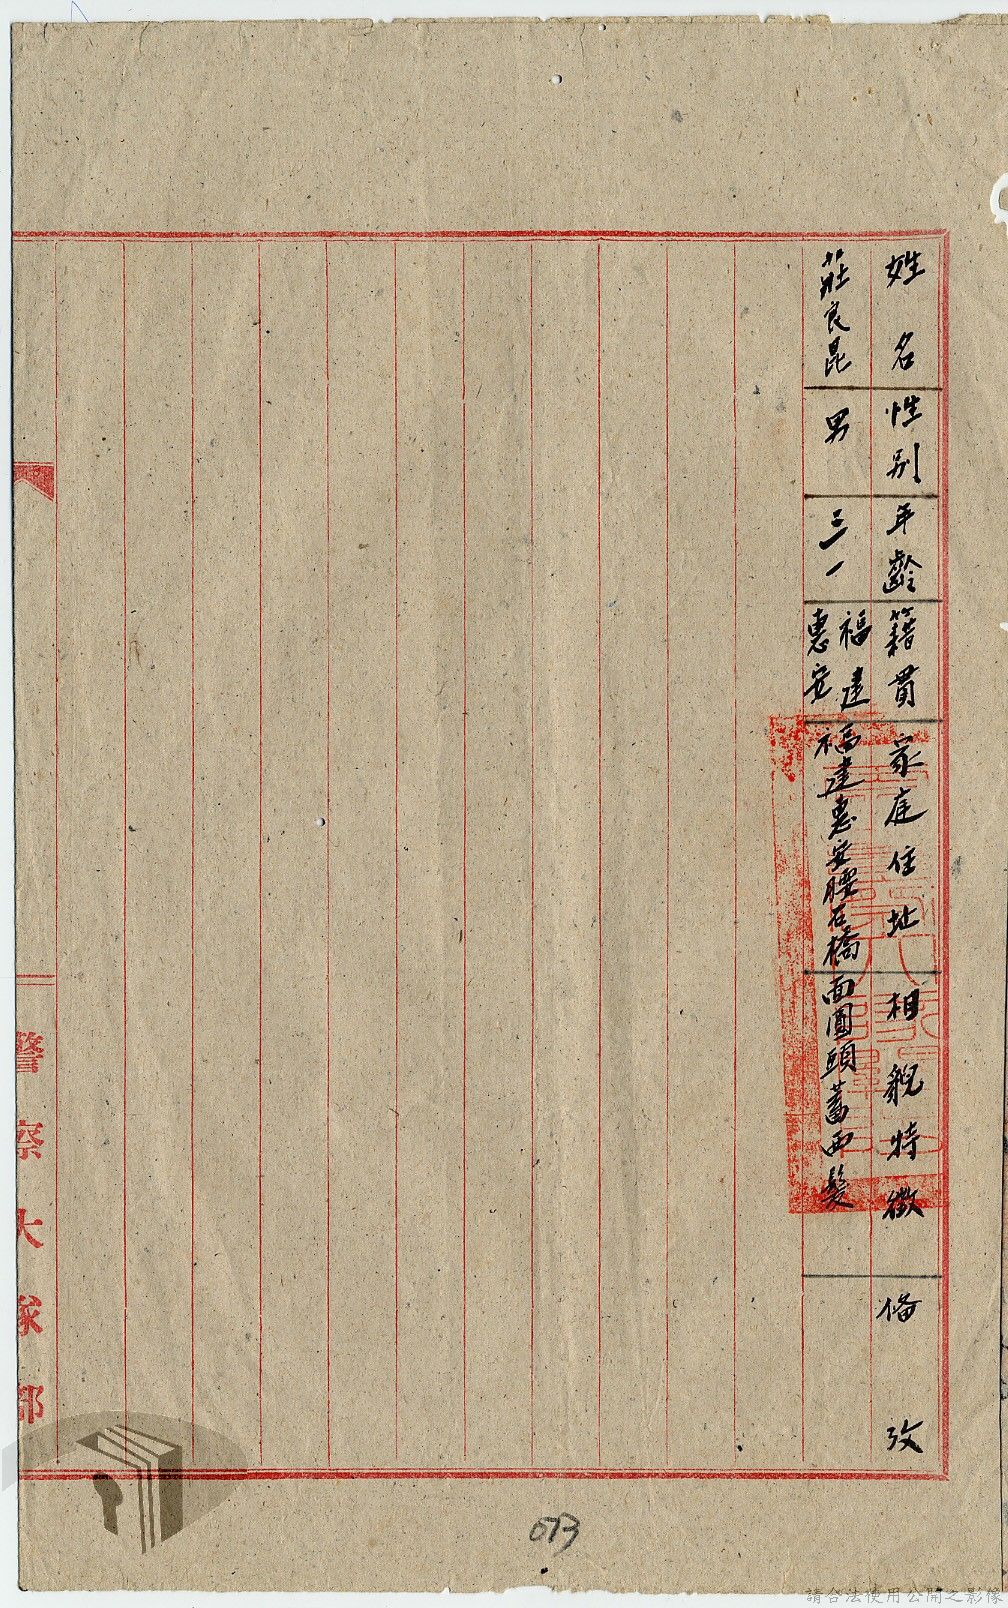 姓名 性別 年齡 籍貫 家庭住址 相貌特徵 備攷
莊良昆 男 三一 福建惠安 福建惠安腰石橋 面圓頭蓄西髮
警察大隊部
073
請合法使用公開之影像